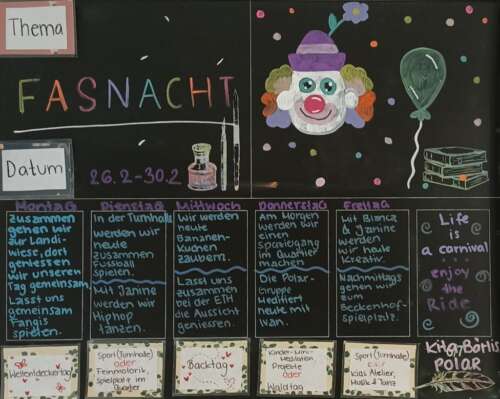 Thema
FASNACHT
Datum
26.2-30.2
Montag
zusammen
gehen wir
zur Landi-
wiese, dort
geniessen
wir unseren
Tag gemeinsam.
Lasst uns
gemeinsam
Fangis
spielen.
Dienstag
In der Turnhalle
werden wir
heute
zusammen
Fussball
spielen.
Mit Janine
werden wir
Hiphop
tanzen.
Mittwoch
Wir werden
heute
Bananen-
kuchen
zaubern.
Lasst uns
zusammen
bei der ETH
die Aussicht
geniessen.
Donnerstag
Am Morgen
werden wir
einen
Spaziergang
im Quartier
machen
Die Polar-
Gruppe
meditiert
heute mit
Ivan.
Freitag
Mit Bianca
& Janine
werden
wir heute
Kreativ.
Nachmittags
gehen wir
zum
Beckenhof-
spielplatz.
Life
is
a carnival
enjoy
the
Ride
Weltentdeckertag
Sport (Turnhalle)
oder
Feinmotorik,
Spielplatz im
Quartier
Backtag
Kinder-Mini-
Meditation
Projekte
oder
Waldtag
Sport (Turnhalle)
Kids Atelier,
Musik & Tanz
POLAR